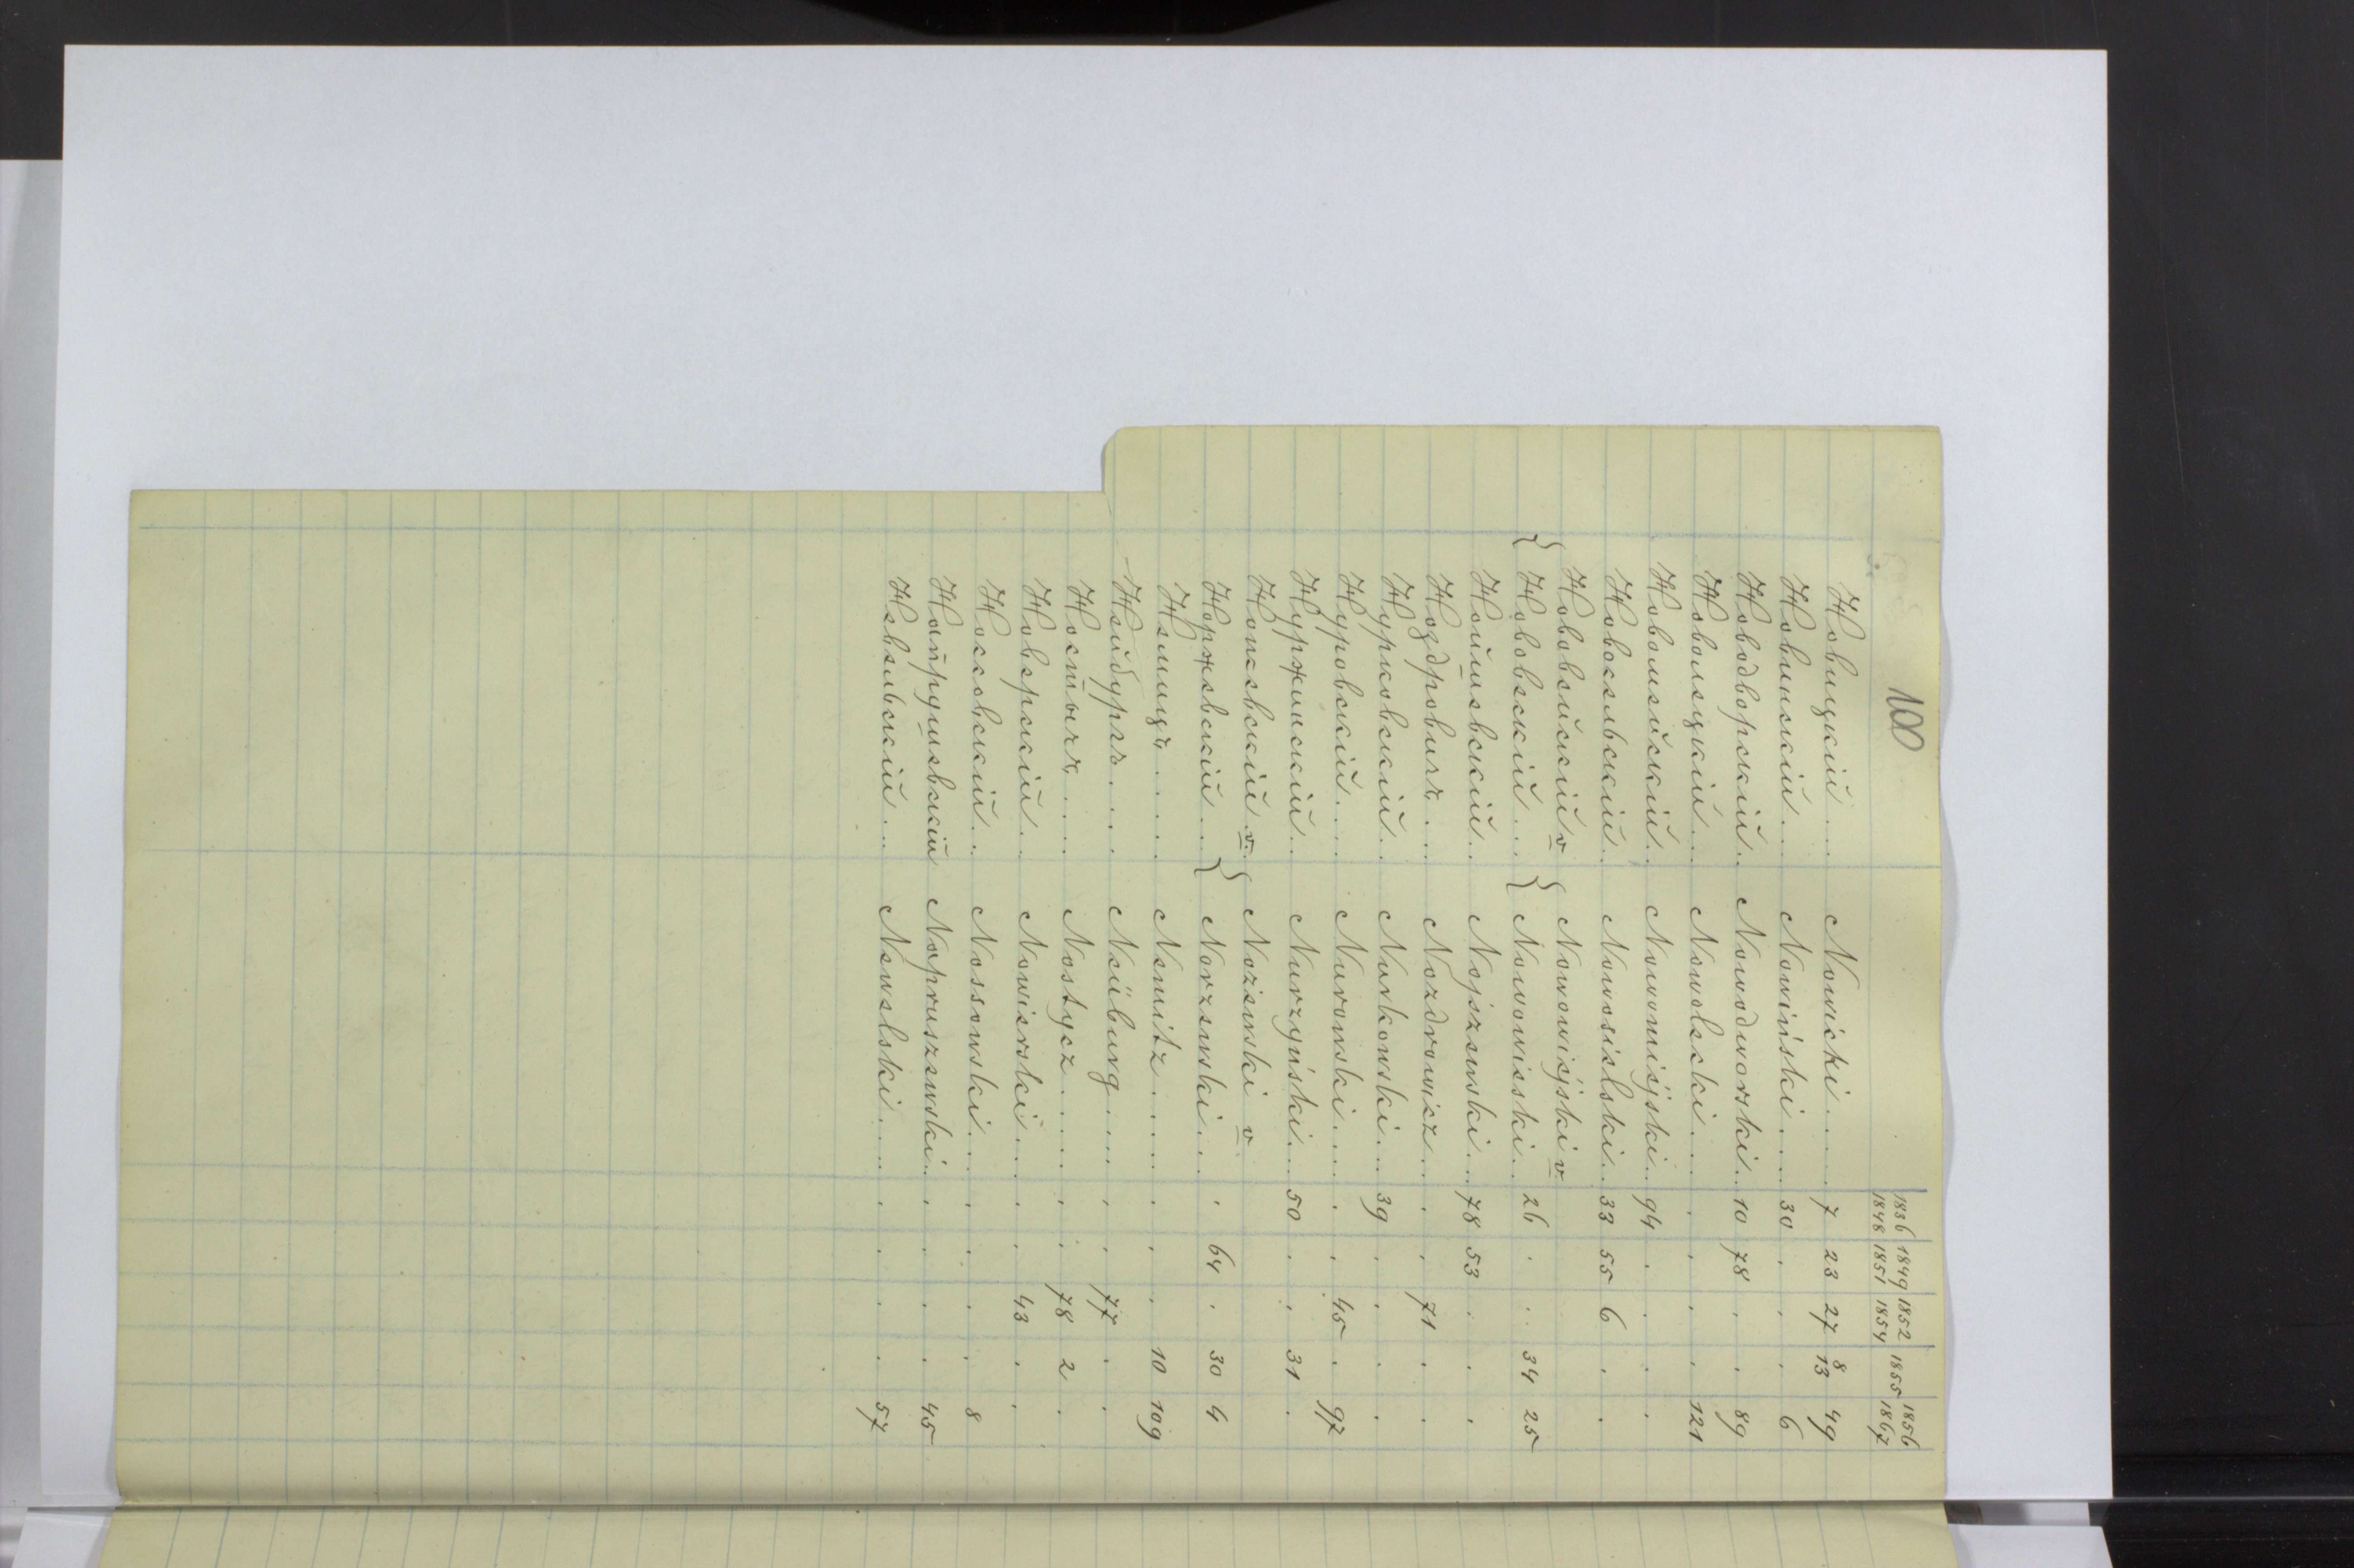 100
1836 1849 1852 1855 1856
1848 1851 1854 1867
Новицкій .... Nowicki ..... 7 23 27 8 13 49
Новинскій ... Nowiński .... 30 . . . 6
Новодворскій .. Nowodworski .. 10 78 . . 89
Новолецкій ... Nowolecki .... . . . . 121
Новомейскій .. Nowomiejski .. 94 . . . .
Новосельскій .. Nowosielski .. 33 55 6 . .
Нововейскій v Nowowiejski v.
{ Нововескій ... } Nowowieski .. 26 . . 34 25
Нойшевскій .. Nojszewski ... 78 53 . . .
Ноздровичъ ... Nozdrowicz ... . . 71 . .
Нурковскій .. Nurkowski ... 39 . . . .
Нуровскій .... Nurowski .... . . 45 . 97
Нуржинскій .. Nurzyński ... 50 . . 31 .
Ножевскій v. Nożewski v
Норжевскій ... } Norzewski ... . 64 . 30 4
Немицъ ..... Nemitz ..... . . . 10 109
Нейбургъ .... Neüburg ..... . . 77 . .
Ностичъ .... Nostycz ..... . . 78 2 .
Новерскій .. Nowierski .... . . 43 . .
Носсовскій .. Nossowski .... . . . . 8
Напрушевскій Napruszewski .. . . . . 45
Невельскій ... Newelski .... . . . . 57